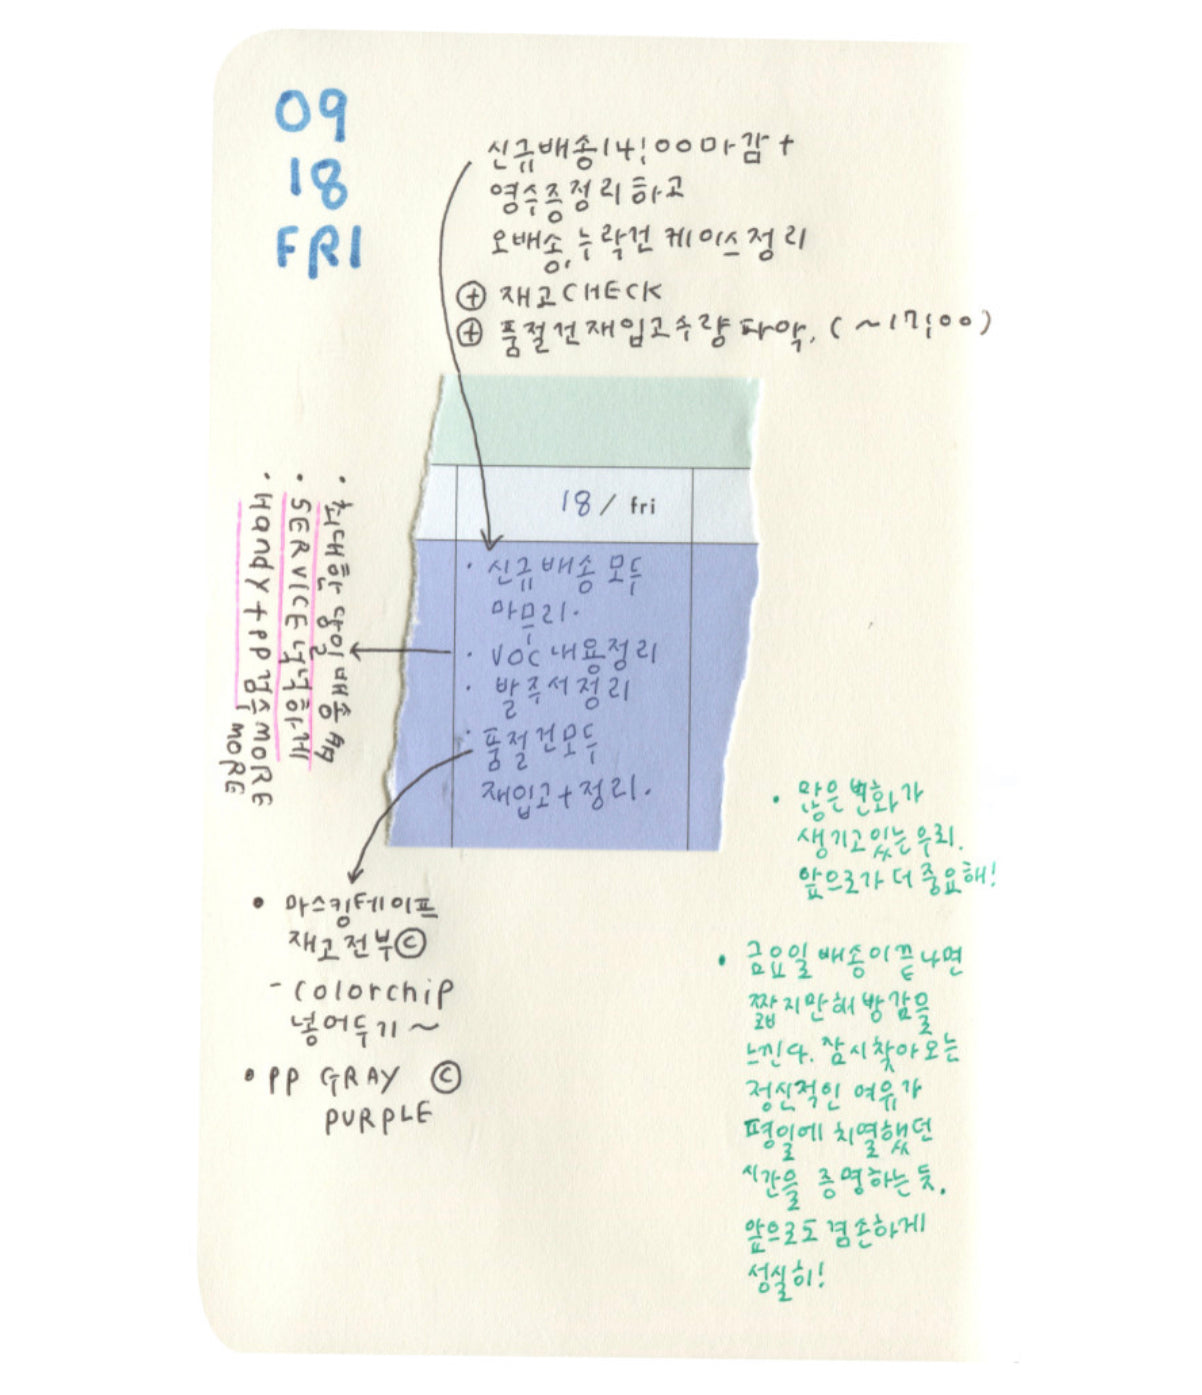 09
18
FRI
신규배송14:00마감+
영수증정리하고
오배송,누락건 케이스정리
⊕ 재고CHECK
⊕ 품절건재입고수량파악. (~17:00)
18 / fri
· 신규배송 모두
마무리.
· VOC 내용정리
· 발주서정리
· 품절건모두
재입고+정리.
· 최대한 당일배송
· SERVICE 넉넉하게
· Handy + PP 검수MORE
MORE
• 마스킹테이프
재고전부ⓒ
- Colorchip
넣어두기~
• PP GRAY ⓒ
PURPLE
· 많은 변화가
생기고있는우리.
앞으로가 더 중요해!
· 금요일 배송이끝나면
짧지만해방감을
느낀다. 잠시찾아오는
정신적인 여유가
평일에 치열했던
시간을 증명하는듯.
앞으로도 겸손하게
성실히!